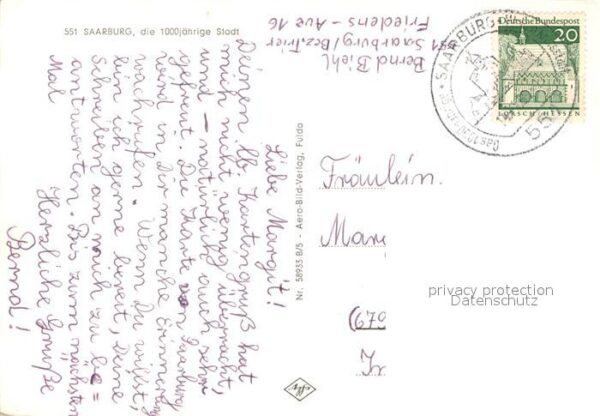 551 SAARBURG, die 1000jährige Stadt
Bernd Biehl
551 Saarburg/Bez. Trier
Friedens-Ave 16
Liebe Margit!
Deinen lb. Kartengruß hat
mich nicht wenig überrascht,
und – natürlich auch sehr
gefreut. Die Karte von Saarburg
wird in Dir manche Erinnerung
wachrufen. Wenn Du willst,
bin ich gerne bereit, Deine
Schreiben an mich zu be=
antworten. Bis zum nächsten
Mal
Herzliche Grüße
Bernd!
Nr. 58935 B/5 - Aero-Bild-Verlag, Fulda
Fräulein.
Mar
(679
SAARBURG
551
Deutsche Bundespost
20
LORSCH/HESSEN
privacy protection
Datenschutz